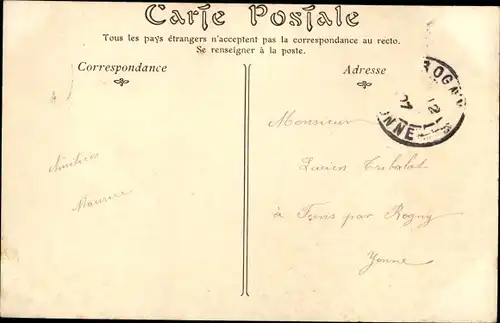 Carte Postale
Tous les pays étrangers n'acceptent pas la correspondance au recto.
Se renseigner à la poste.
Correspondance
Adresse
Amitiés
Maurice
Monsieur
Lucien Tribalat
à par Rogny
Yonne
ROGNY
YONNE